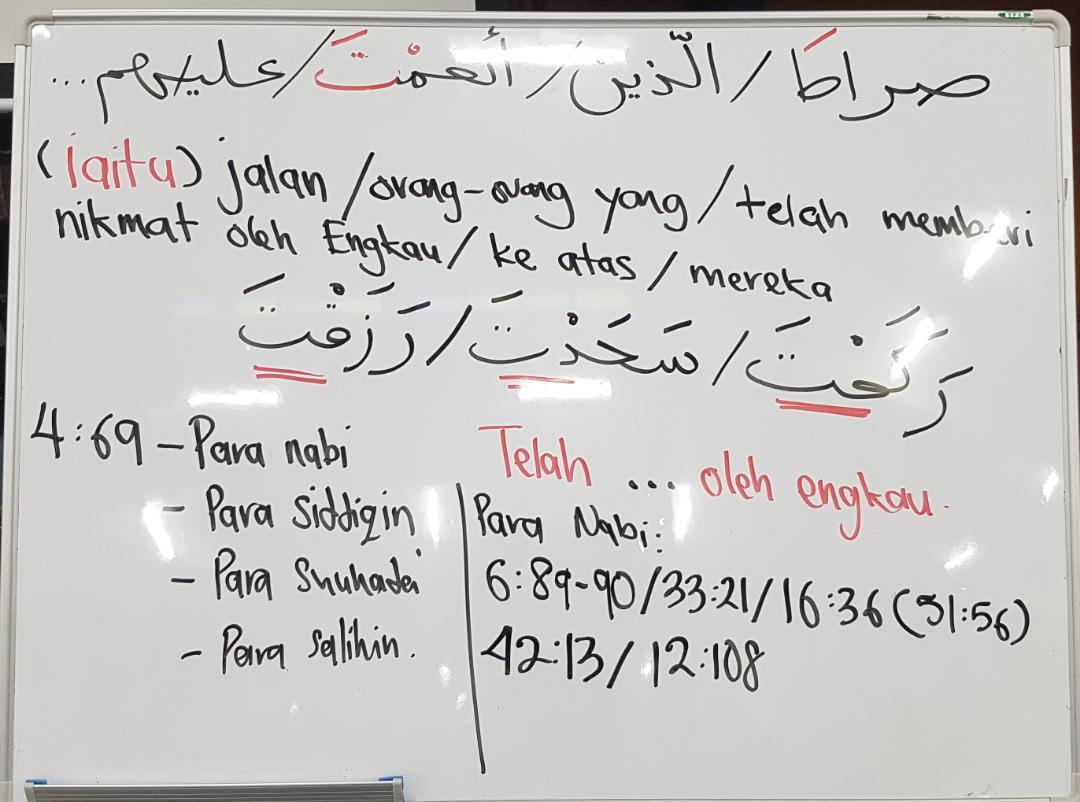 صراطَ / الّذين / أنعمْتَ / عليهم ...
(iaitu) jalan / orang-orang yang / telah memberi
nikmat oleh Engkau / ke atas / mereka
رَكَعْتَ / سَجَدْتَ / رَزَقْتَ
4:69 - Para nabi
- Para siddiqin
- Para Shuhada
- Para salihin.
Telah ... oleh engkau.
Para Nabi:
6:89-90 / 33:21 / 16:36 (51:56)
42:13 / 12:108